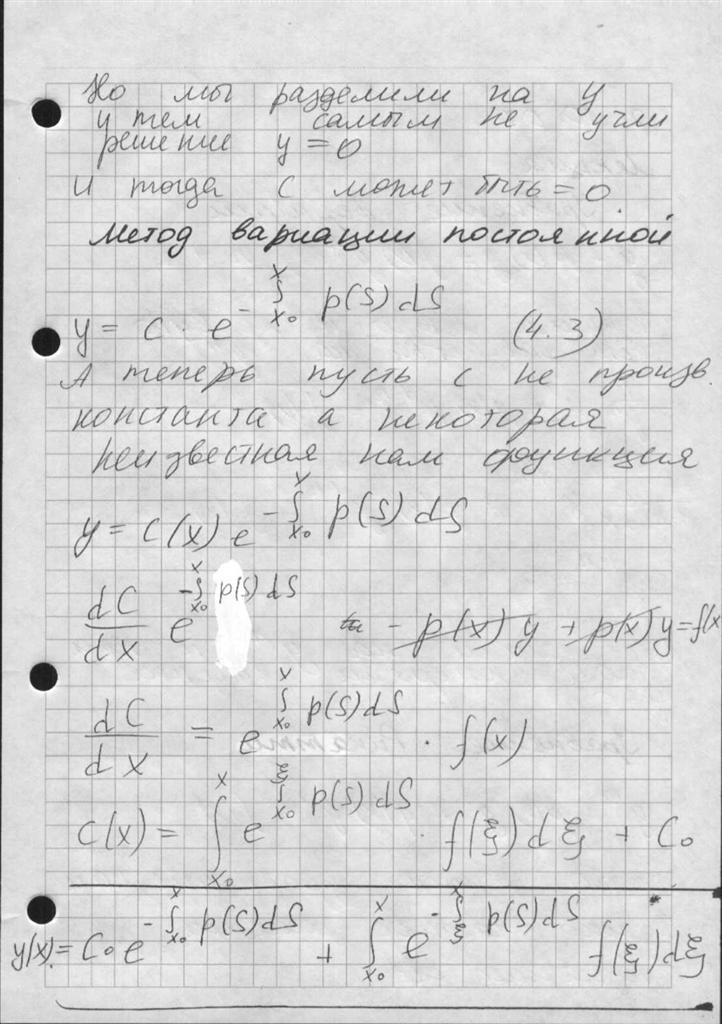 Но мы разделили на y
и тем самым не учли
решение y = 0
И тогда C может быть = 0
Метод вариации постоянной
y = C · e^{-∫_{x₀}^{x} p(ζ) dζ} (4.3)
А теперь пусть C не произв.
константа а некоторая
неизвестная нам функция
y = C(x) e^{-∫_{x₀}^{x} p(ζ) dζ}
dC/dx e^{-∫_{x₀}^{x} p(ζ) dζ} - p(x) y + p(x) y = f(x
dC/dx = e^{∫_{x₀}^{x} p(ζ) dζ} · f(x)
C(x) = ∫_{x₀}^{x} e^{∫_{x₀}^{ξ} p(ζ) dζ} · f(ξ) dξ + C₀
y(x) = C₀ e^{-∫_{x₀}^{x} p(ζ) dζ} + ∫_{x₀}^{x} e^{-∫_{ξ}^{x} p(ζ) dζ} f(ξ) dξ